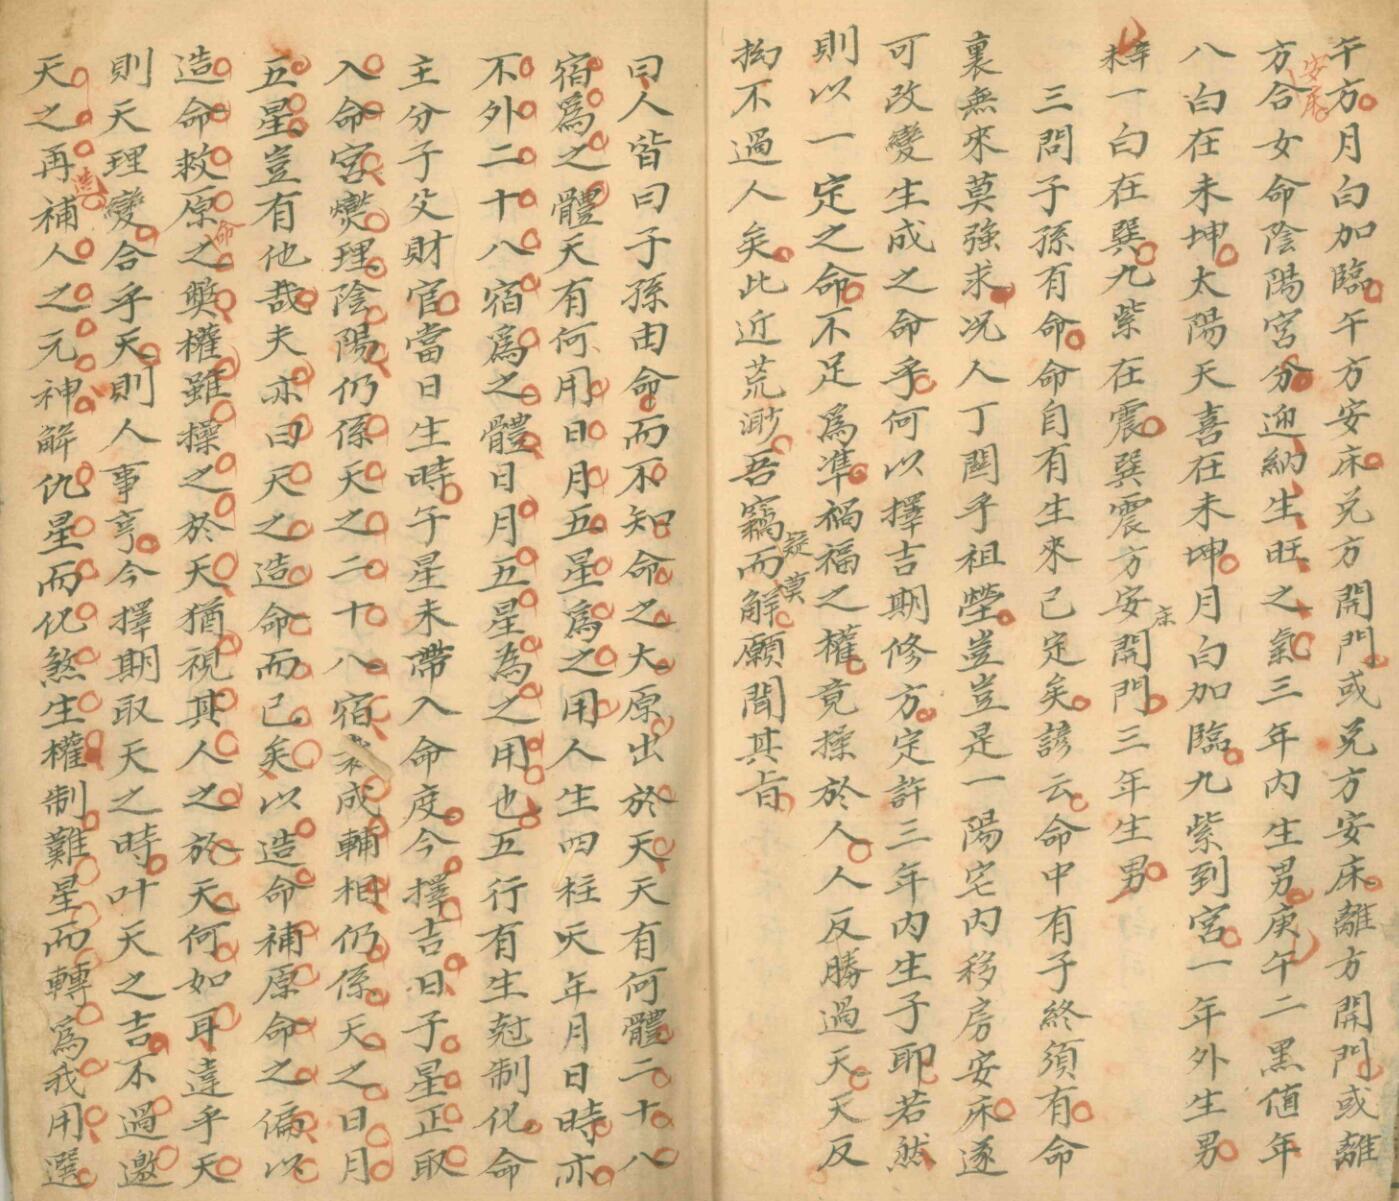 午方月白加臨午方安床兑方開門或兑方安床離方開門或離
方合女命陰陽宮分迎納生旺之氣三年內生男庚午二黑值年
安床
八白在未坤太陽天喜在未坤月白加臨九紫到宮一年外生男
辛未一白在巽九紫在震巽震方安開門三年生男
床
三問子孫有命命自有生來已定矣諺云命中有子終須有命
裏無來莫強求况人丁關乎祖塋豈豈是一陽宅內移房安床遂
可改變生成之命乎何以擇吉期修方定許三年內生子耶若然
則以一定之命不足為凖禍福之權竟操於人人反勝過天天反
拗不過人矣此近荒渺吾竊而解願聞其旨
疑漠
曰人皆曰子孫由命而不知命之大原出於天天有何體二十八
宿爲之體天有何用日月五星爲之用人生四柱天年月日時亦
不外二十八宿爲之體日月五星為之用也五行有生尅制化命
主分子父財官當日生時午星未帶入命度今擇吉日子星正取
入命宮爕理陰陽仍係天之二十八宿成輔相仍係天之日月
五星豈有他哉夫亦曰天之造命而已矣以造命補原命之偏以
造命救原之獘權雖操之於天猶視其人之於天何如耳違乎天
命
則天理變合乎天則人事亨今擇期取天之時叶天之吉不過邀
天之再補人之元神解仇星而化煞生權制難星而轉爲我用選
造